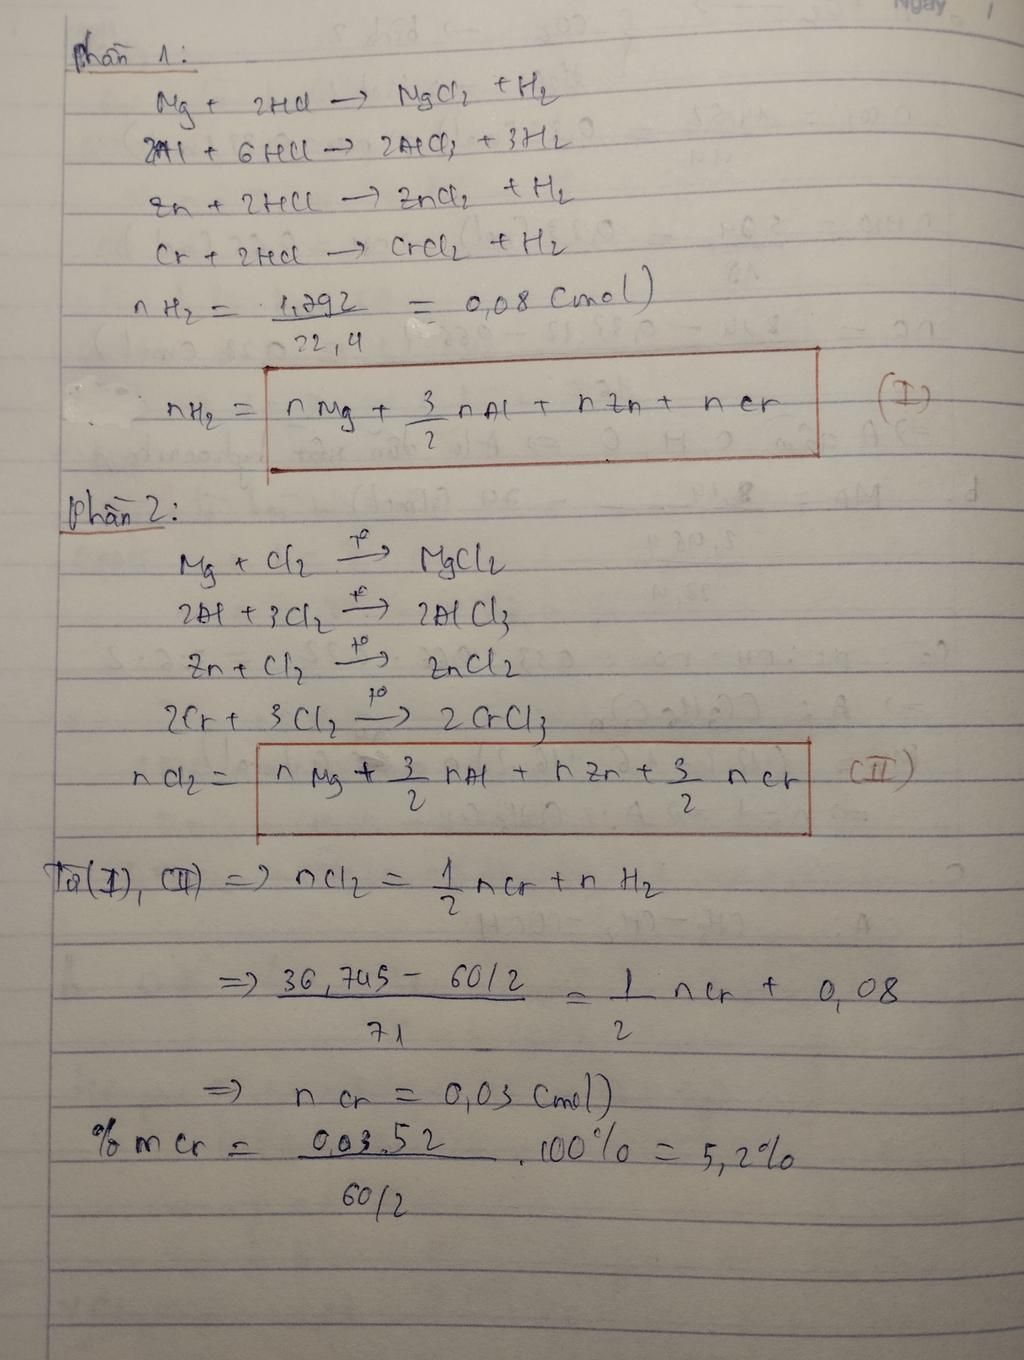 Ngày
Phần 1:
Mg + 2HCl → MgCl2 + H2
2Al + 6HCl → 2AlCl3 + 3H2
Zn + 2HCl → ZnCl2 + H2
Cr + 2HCl → CrCl2 + H2
nH2 = 1,792/22,4 = 0,08 (mol)
nH2 = nMg + 3/2 nAl + nZn + nCr (I)
Phần 2:
Mg + Cl2 →(t°) MgCl2
2Al + 3Cl2 →(t°) 2AlCl3
Zn + Cl2 →(t°) ZnCl2
2Cr + 3Cl2 →(t°) 2CrCl3
nCl2 = nMg + 3/2 nAl + nZn + 3/2 nCr (II)
Từ (I), (II) => nCl2 = 1/2 nCr + nH2
=> (36,745 - 60/2)/71 = 1/2 nCr + 0,08
=> nCr = 0,03 (mol)
%mCr = (0,03.52)/(60/2) . 100% = 5,2%